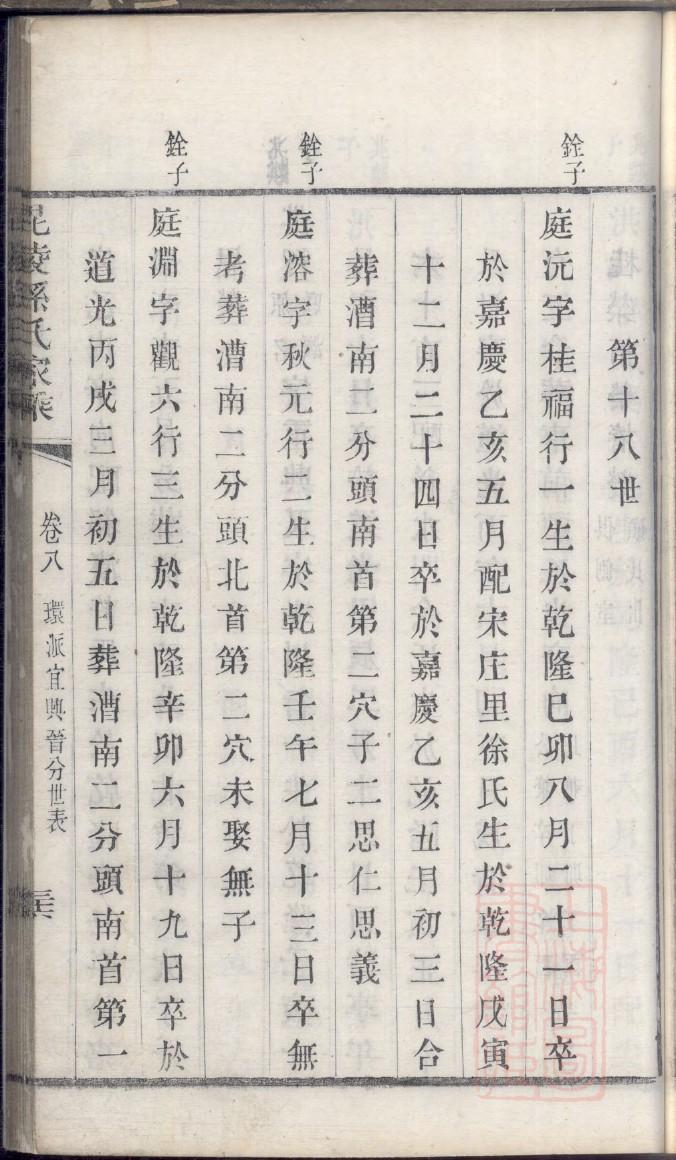 第十八世
銓子
庭沅字桂福行一生於乾隆巳卯八月二十一日卒
於嘉慶乙亥五月配宋庄里徐氏生於乾隆戊寅
十二月二十四日卒於嘉慶乙亥五月初三日合
葬漕南二分頭南首第二穴子二思仁思義
銓子
庭溶字秋元行二生於乾隆壬午七月十三日卒無
考葬漕南二分頭北首第二穴未娶無子
銓子
庭淵字觀六行三生於乾隆辛卯六月十九日卒於
道光丙戌三月初五日葬漕南二分頭南首第一
毘陵孫氏家乘
卷八
環派宜興晉分世表